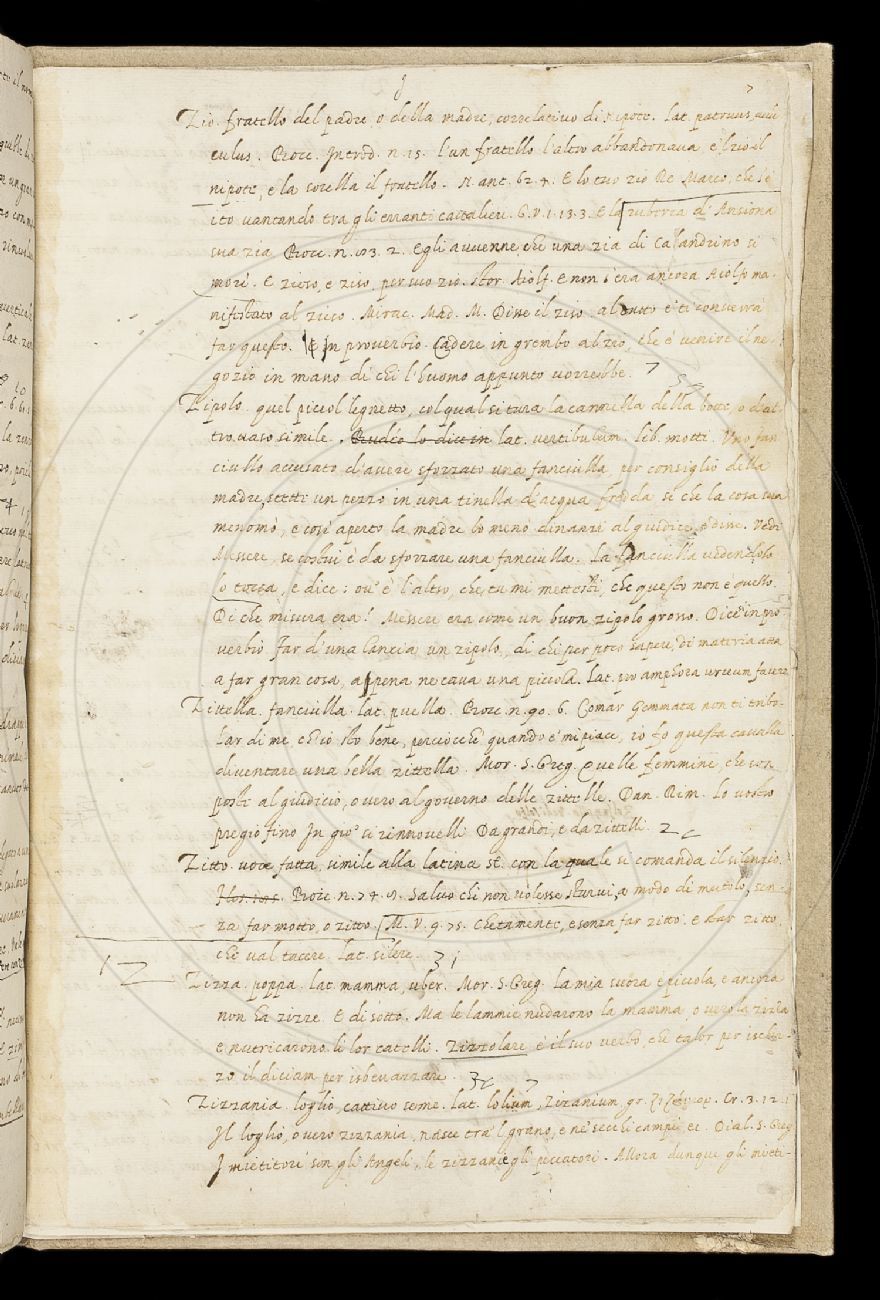 Zio. fratello del padre o della madre, correlatiuo di Nipote. Lat. patruus, auu
culus. Bocc. Introd. n. 15. l'un fratello l'altro abbandonaua, e 'l zio il
nipote, e la sorella il fratello. N. ant. 62. 4. E lo tuo zio Re Marco, che se
ito vantando tra gli erranti caualieri. G. V. 1. 13. 3. E la
sua zia Bocc. n. 2. Egli auuenne, che una zia di Calandrino si
morì. E zieso, e ziso, per suo zio. Stor. Aiolf. E non s'era ancora Aiolfo ma-
nifestato al zieso. Mirac. Mad. M. Disse il ziso al e' ti conuerrà
far questo. In prouerbio. Cadere in grembo al zio, che è venire il ne-
gozio in mano di chi l'huomo appunto vorrebbe. 7
Zipolo. quel picciol legnetto, col qual si tura la cannella della botte, o d'al-
tro vaso simile. lat. vertibulum. lib. motti. Uno fan
ciullo accusato d'auere sforzato una fanciulla per consiglio della
madre, stette un pezzo in una tinella d'acqua fredda sì che la cosa sua
menomò, e così aperto la madre lo menò dinanzi al giudice, e disse. Vedi
Messere, se costui è da sforzare una fanciulla. La fanciulla vedendolo
lo tocca, e dice: ou' è l'altro, che tu mi mettesti, che questo non e quello.
Di che misura era? Messere era come un buon zipolo grosso. Dicesi in pro-
uerbio far d'una lancia un zipolo, di chi per poco sapere, di materia atta
a far gran cosa, appena ne caua una piccola. Lat. pro amphora urceum facere
Zittella. fanciulla. lat. puella. Bocc. n. 90. 6. Comar Gemmata non ti tribo-
lar di me, ch'io sto bene, perciocchè quando e' mi piace, io fo questa caualla
diuentare una bella zittella. Mor. S. Greg. Quelle femmine, che son
poste al giudicio, o uero al gouerno delle zittelle. Dan. Rim. Lo vostro
pregio fino In gio' si rinnouelli Da grandi, e da zittelli.
Zitto. voce fatta, simile alla latina st. con la quale si comanda il silenzio.
Bocc. n. Saluo chi non volesse starui, a modo di mutolo, sen-
za far motto, o zitto. M. V. 9. 75. Chetamente, e senza far zitto. E star zitto,
che val tacere. Lat. silere.
12
Zizza. poppa. lat. mamma, uber. Mor. S. Greg. La mia suora e piccola, e ancora
non ha zizze. E di sotto. Ma le lammie nudarono la mamma, o vero la zizza
e nutricarono li lor catelli. Zizzolare è il suo verbo, che talor per ischer-
zo il diciam per isbeuazzare.
Zizzania. loglio, cattiuo seme. lat. lolium, zizanium, gr. Cr. 3. 12. 1
Il loglio, o uero zizzania, nasce tra 'l grano, e ne' secchi campi ec. Dial. S. Greg
I mietitori son gli Angeli, le zizzanie gli peccatori. Allora dunque gli mieti-